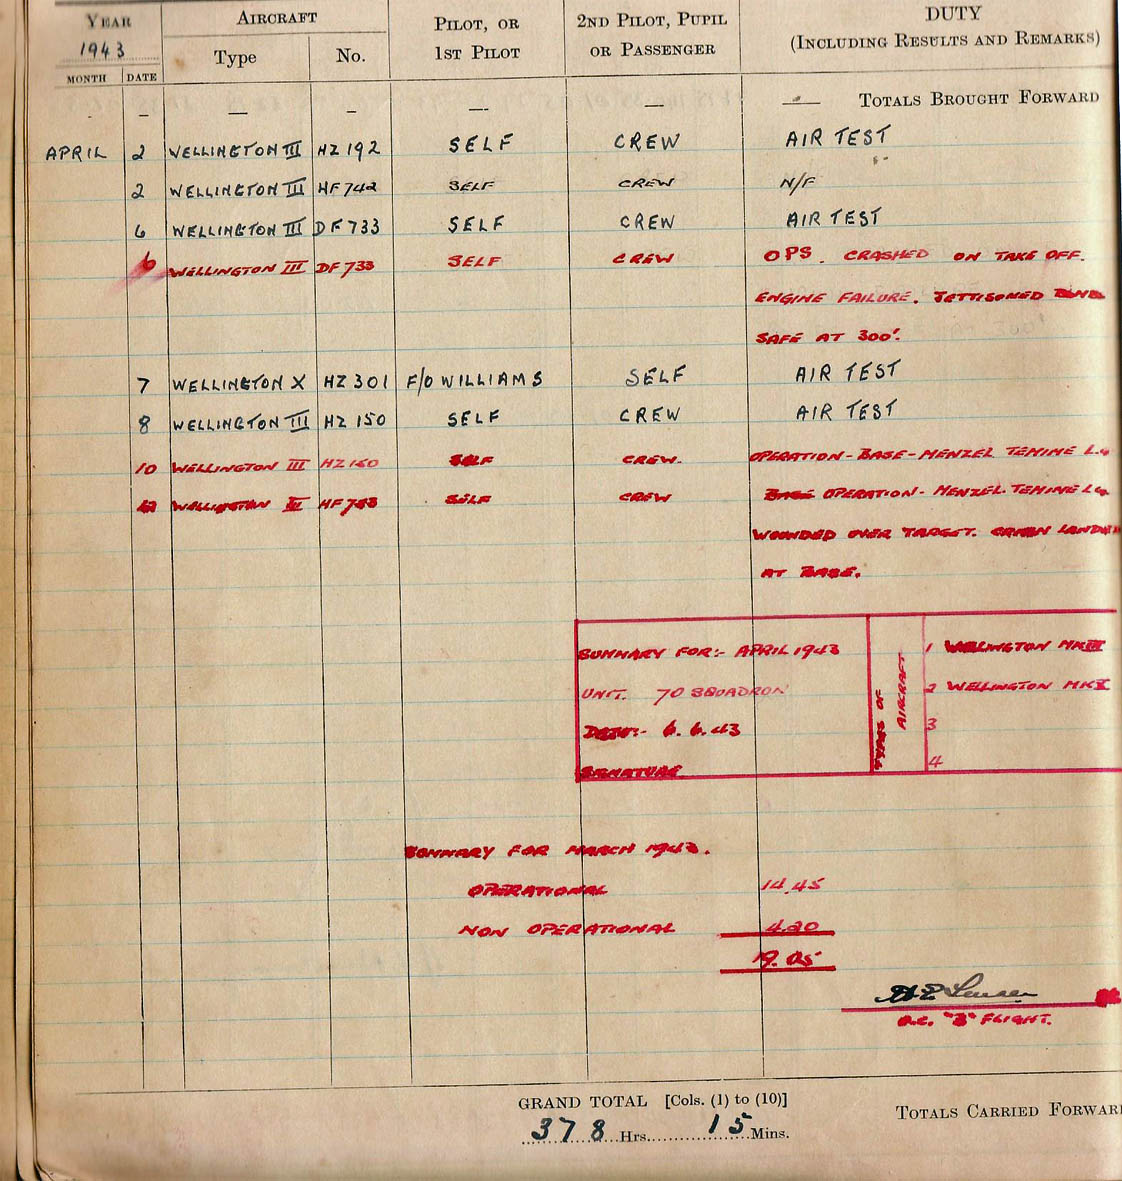 YEAR AIRCRAFT PILOT, OR 2ND PILOT, PUPIL DUTY
1943 Type No. 1ST PILOT OR PASSENGER (INCLUDING RESULTS AND REMARKS)
MONTH DATE
- - — - — — — TOTALS BROUGHT FORWARD
APRIL 2 WELLINGTON III HZ 192 SELF CREW AIR TEST
2 WELLINGTON III HF 742 SELF CREW N/F
6 WELLINGTON III DF 733 SELF CREW AIR TEST
6 WELLINGTON III DF 733 SELF CREW OPS. CRASHED ON TAKE OFF.
ENGINE FAILURE. JETTISONED
SAFE AT 300'.
7 WELLINGTON X HZ 301 F/O WILLIAMS SELF AIR TEST
8 WELLINGTON III HZ 150 SELF CREW AIR TEST
10 WELLINGTON III HZ 150 SELF CREW. OPERATION - BASE - MENZEL TEMIME L.G
WELLINGTON HF SELF CREW OPERATION - MENZEL TEMIME LG
WOUNDED OVER TARGET. LANDED
AT BASE.
SUMMARY FOR:- APRIL 1943 TYPES OF AIRCRAFT 1 WELLINGTON MK III
UNIT. 70 SQUADRON 2 WELLINGTON MK X
DATE:- 6. 6. 43 3
SIGNATURE 4
SUMMARY FOR MARCH 1943.
OPERATIONAL 14.45
NON OPERATIONAL 4.20
19.05
O.C. "B" FLIGHT.
GRAND TOTAL [Cols. (1) to (10)] TOTALS CARRIED FORWARD
378 Hrs. 15 Mins.